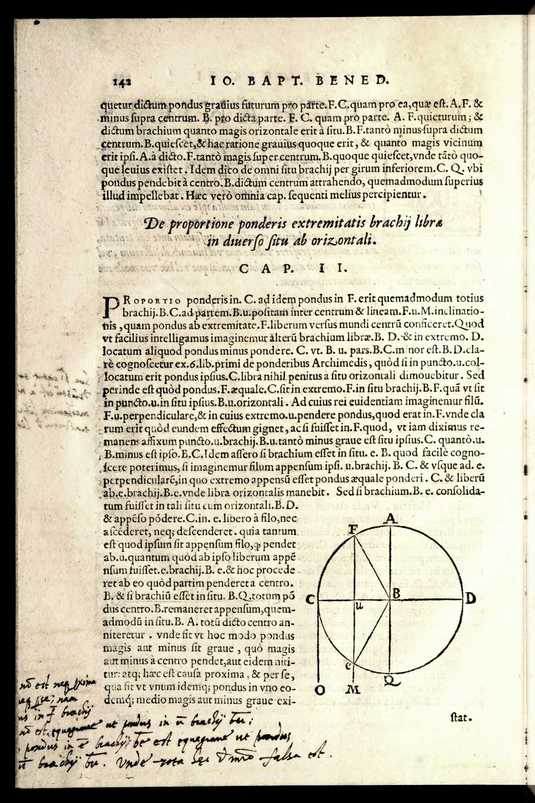 142 IO. BAPT. BENED.
quetur dictum pondus grauius futurum pro parte. F.C. quam pro ea, quæ est. A.F. &
minus supra centrum. B. pro dicta parte. F. C. quam pro parte. A. F. quieturum; &
dictum brachium quanto magis orizontale erit à situ. B.F. tantò minus supra dictum
centrum. B. quiescet, & hac ratione grauius quoque erit, & quanto magis vicinum
erit ipsi. A. à dicto. F. tantò magis super centrum. B. quoque quiescet, vnde tātò quo-
que leuius existet. Idem dico de omni situ brachij per girum inferiorem. C. Q. vbi
pondus pendebit à centro. B. dictum centrum attrahendo, quemadmodum superius
illud impellebat. Hæc verò omnia cap. sequenti melius percipientur.
De proportione ponderis extremitatis brachij libræ
in diuerso situ ab orizontali.
CAP. II.
PROPORTIO ponderis in. C. ad idem pondus in F. erit quemadmodum totius
brachij. B.C. ad partem. B.u. positam inter centrum & lineam. F.u. M. inclinatio-
nis, quam pondus ab extremitate. F. liberum versus mundi centrū conficeret. Quod
vt facilius intelligamus imaginemur alterū brachium libræ. B. D. & in extremo. D.
locatum aliquod pondus minus pondere. C. vt. B. u. pars. B.C. minor est. B.D. cla-
rè cognoscetur ex. 6. lib. primi de ponderibus Archimedis, quòd si in puncto. u. col-
locatum erit pondus ipsius. C. libra nihil penitus à situ orizontali dimouebitur. Sed
perinde est quòd pondus. F. æquale. C. sit in extremo. F. in situ brachij. B.F. quā vt sit
in puncto. u. in situ ipsius. B.u. orizontali. Ad cuius rei euidentiam imaginemur filū.
F. u. perpendiculare, & in cuius extremo. u. pendere pondus, quod erat in. F. vnde cla
rum erit quòd eundem effectum gignet, ac si fuisset in. F. quod, vt iam diximus re-
manens affixum puncto. u. brachij. B.u. tantò minus graue est situ ipsius. C. quantò. u.
B. minus est ipso. B.C. Idem assero si brachium esset in situ. e. B. quod facilè cogno-
scere poterimus, si imaginemur filum appensum ipsi. u. brachij. B. C. & vsque ad. e.
perpendicularè, in quo extremo appensū esset pondus æquale ponderi. C. & liberū
ab. e. brachij. B. e. vnde libra orizontalis manebit. Sed si brachium. B. e. consolida-
tum fuisset in tali situ cum orizontali. B. D.
& appēso pōdere. C. in. e. libero à filo, nec
ascederet, neq; descenderet. quia tantum
est quòd ipsum sit appensum filo, q̃ pendet
ab. u. quantum quòd ab ipso liberum appē
nsum fuisset. e. brachij. B. e. & hoc procede
ret ab eo quòd partim penderet à centro.
B. & si brachiū esset in situ. B. Q. totum pō
dus centro. B. remaneret appensum, quem-
admodū in situ. B. A. totū dicto centro an-
niteretur. vnde sit vt hoc modo pondus
magis aut minus sit graue, quò magis
aut minus à centro pendet, aut eidem niti-
tur: atq; hæc est causa proxima, & per se,
qua fit vt vnum idemq; pondus in vno eo-
demq; medio magis aut minus graue exi-
stat.
A
F
C
u
B
D
e
Q
O
M
nō est neq proxima
neq per se; nam
brachij
nō est æquegraue ut pondus in ē brachij bu;
pondus in e brachij be est æquegraue ut pondus
brachij bu. Vnde tota falsa est.